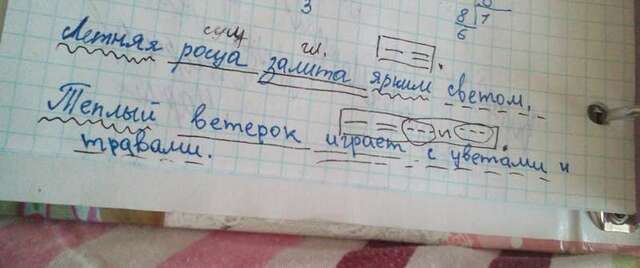 3
8 7
6
сущ гл.
Летняя роща залита ярким светом.
Теплый ветерок играет с цветами и
травами.